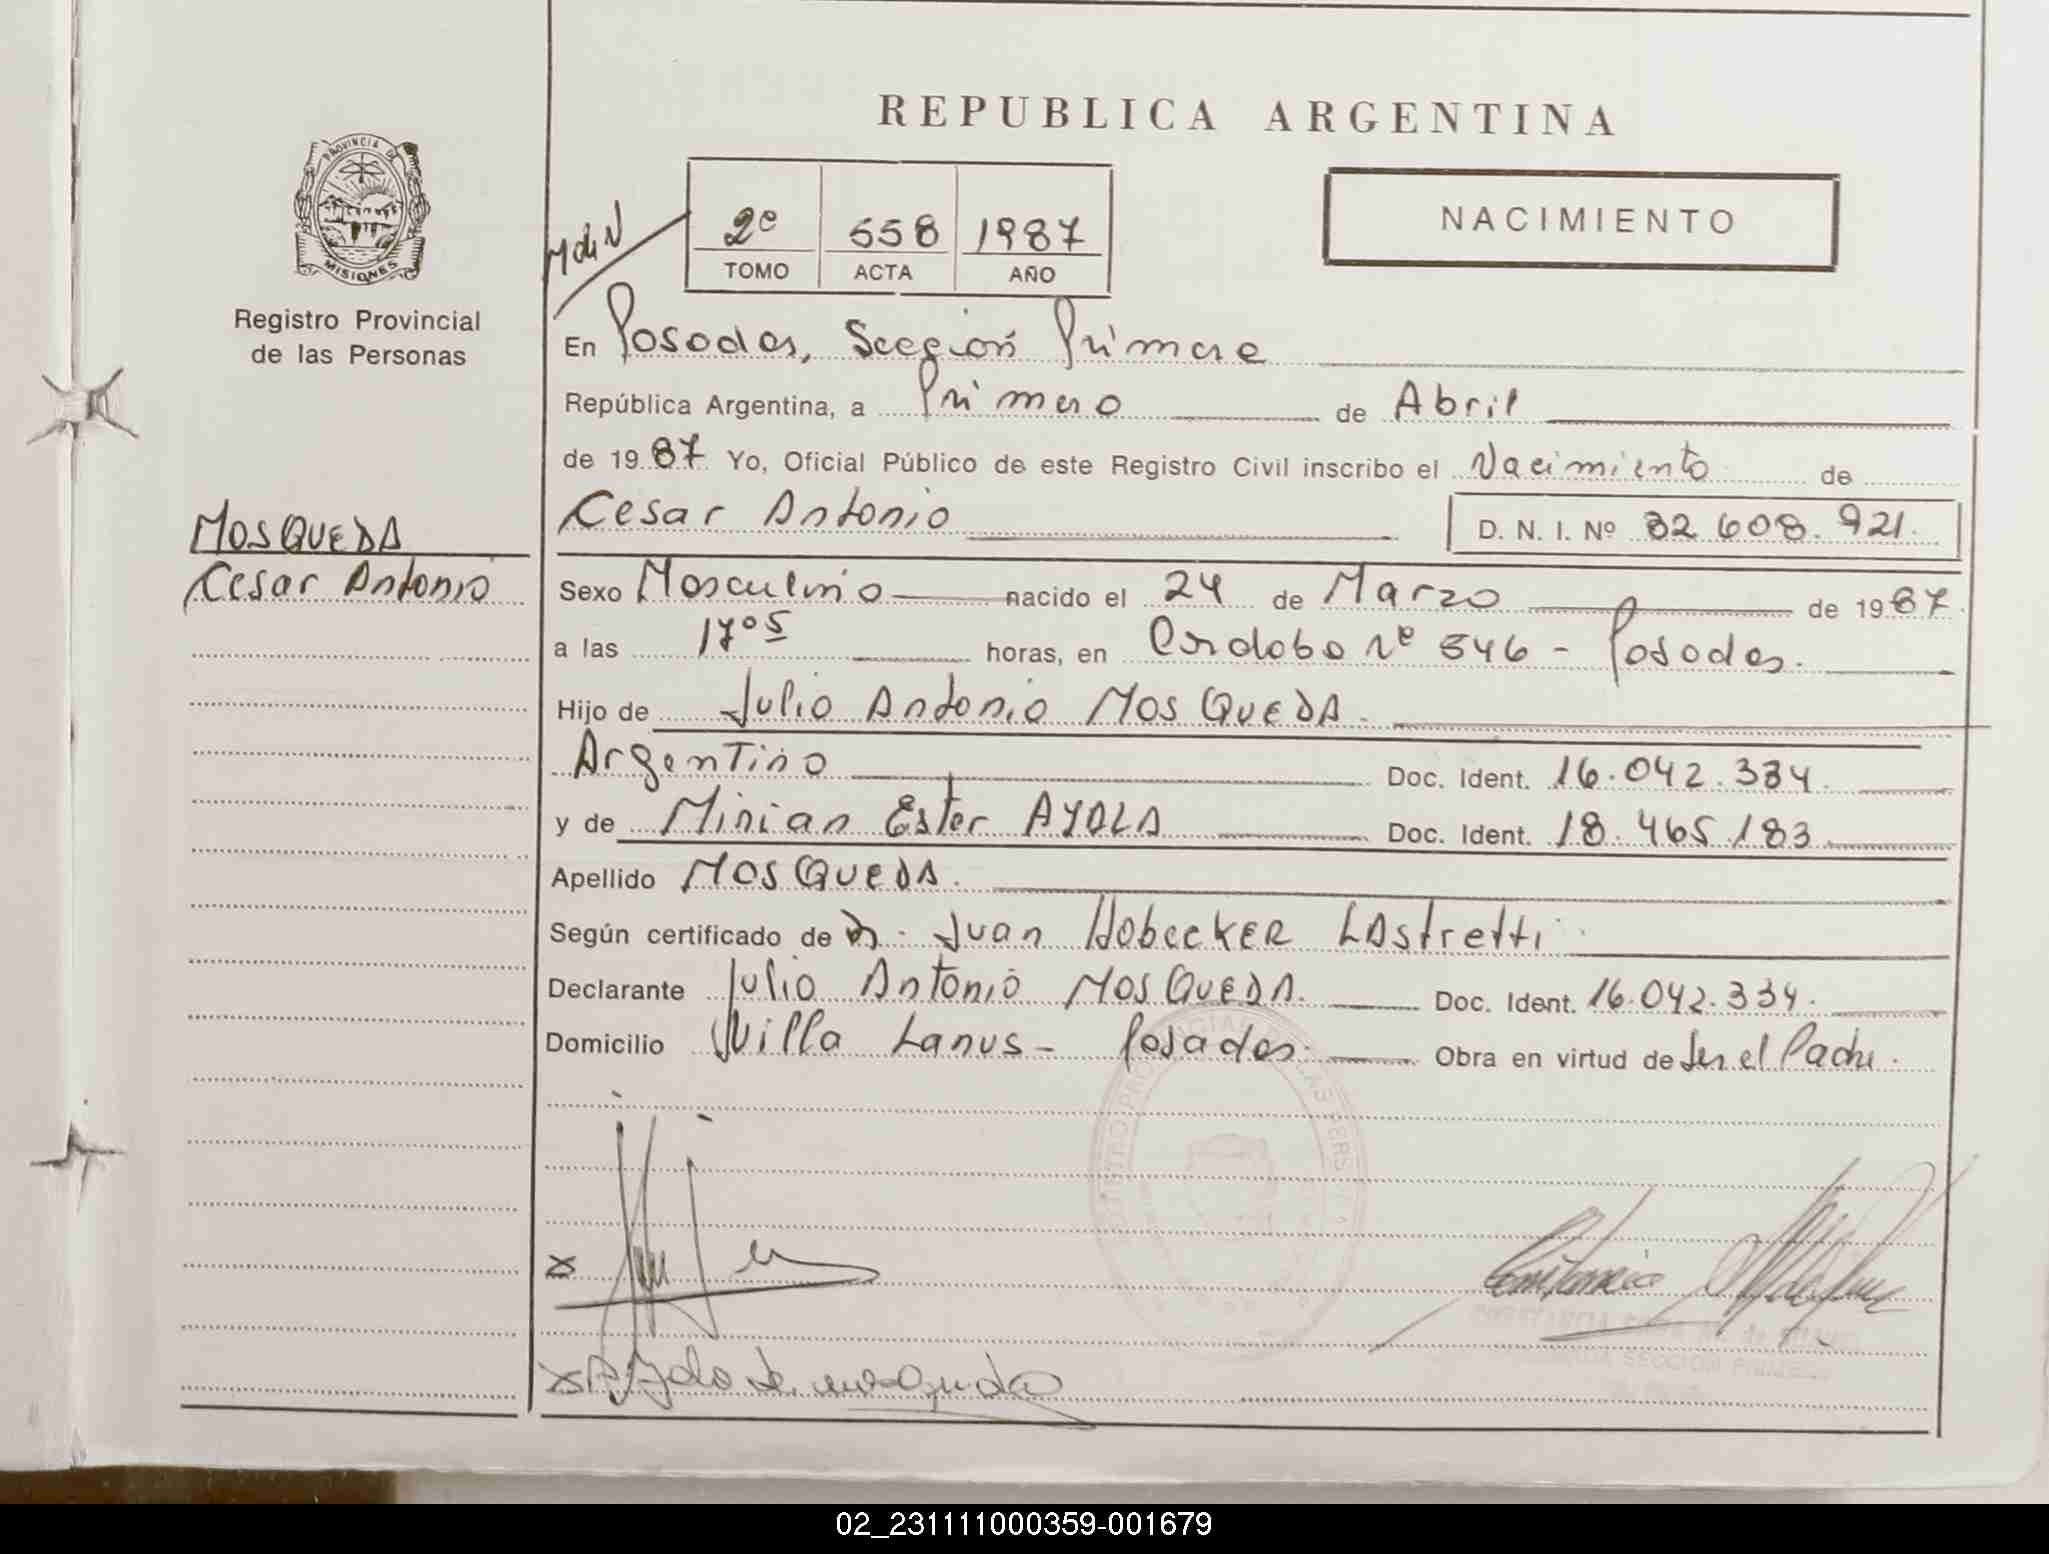 REPUBLICA ARGENTINA
PROVINCIA DE
MISIONES
Registro Provincial
de las Personas
2º 558 1987
TOMO ACTA AÑO
NACIMIENTO
En Posadas, Sección Primera
República Argentina, a Primero de Abril
de 1987 Yo, Oficial Público de este Registro Civil inscribo el Nacimiento de
Cesar Antonio D. N. I. Nº 32 608.921.
MOSQUEDA
Cesar Antonio
Sexo Masculino nacido el 24 de Marzo de 1987
a las 17º5 horas, en Cordoba Nº 546 - Posadas.
Hijo de Julio Antonio MOSQUEDA.
Argentino Doc. Ident. 16.042.334.
y de Mirian Ester AYALA Doc. Ident. 18.465.183
Apellido MOSQUEDA.
Según certificado de Dr. Juan HobeckER LAstretti.
Declarante Julio Antonio MOSQUEDA. Doc. Ident. 16.042.334.
Domicilio Villa Lanus - Posadas. Obra en virtud de Ser el Padre.
02_231111000359-001679